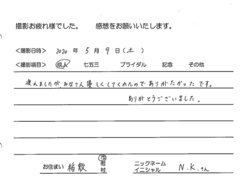 撮影お疲れ様でした。 感想をお願いいたします。
◆撮影日時》 2020 年 5 月 9 日(土)
◆撮影項目》 成人 七五三 ブライダル 記念 その他
みなさん優しくしてくれたのでありがたかったです。
ありがとうございました。
お住まい 稲敷 市 町 村
ニックネーム
イニシャル N.K. さん